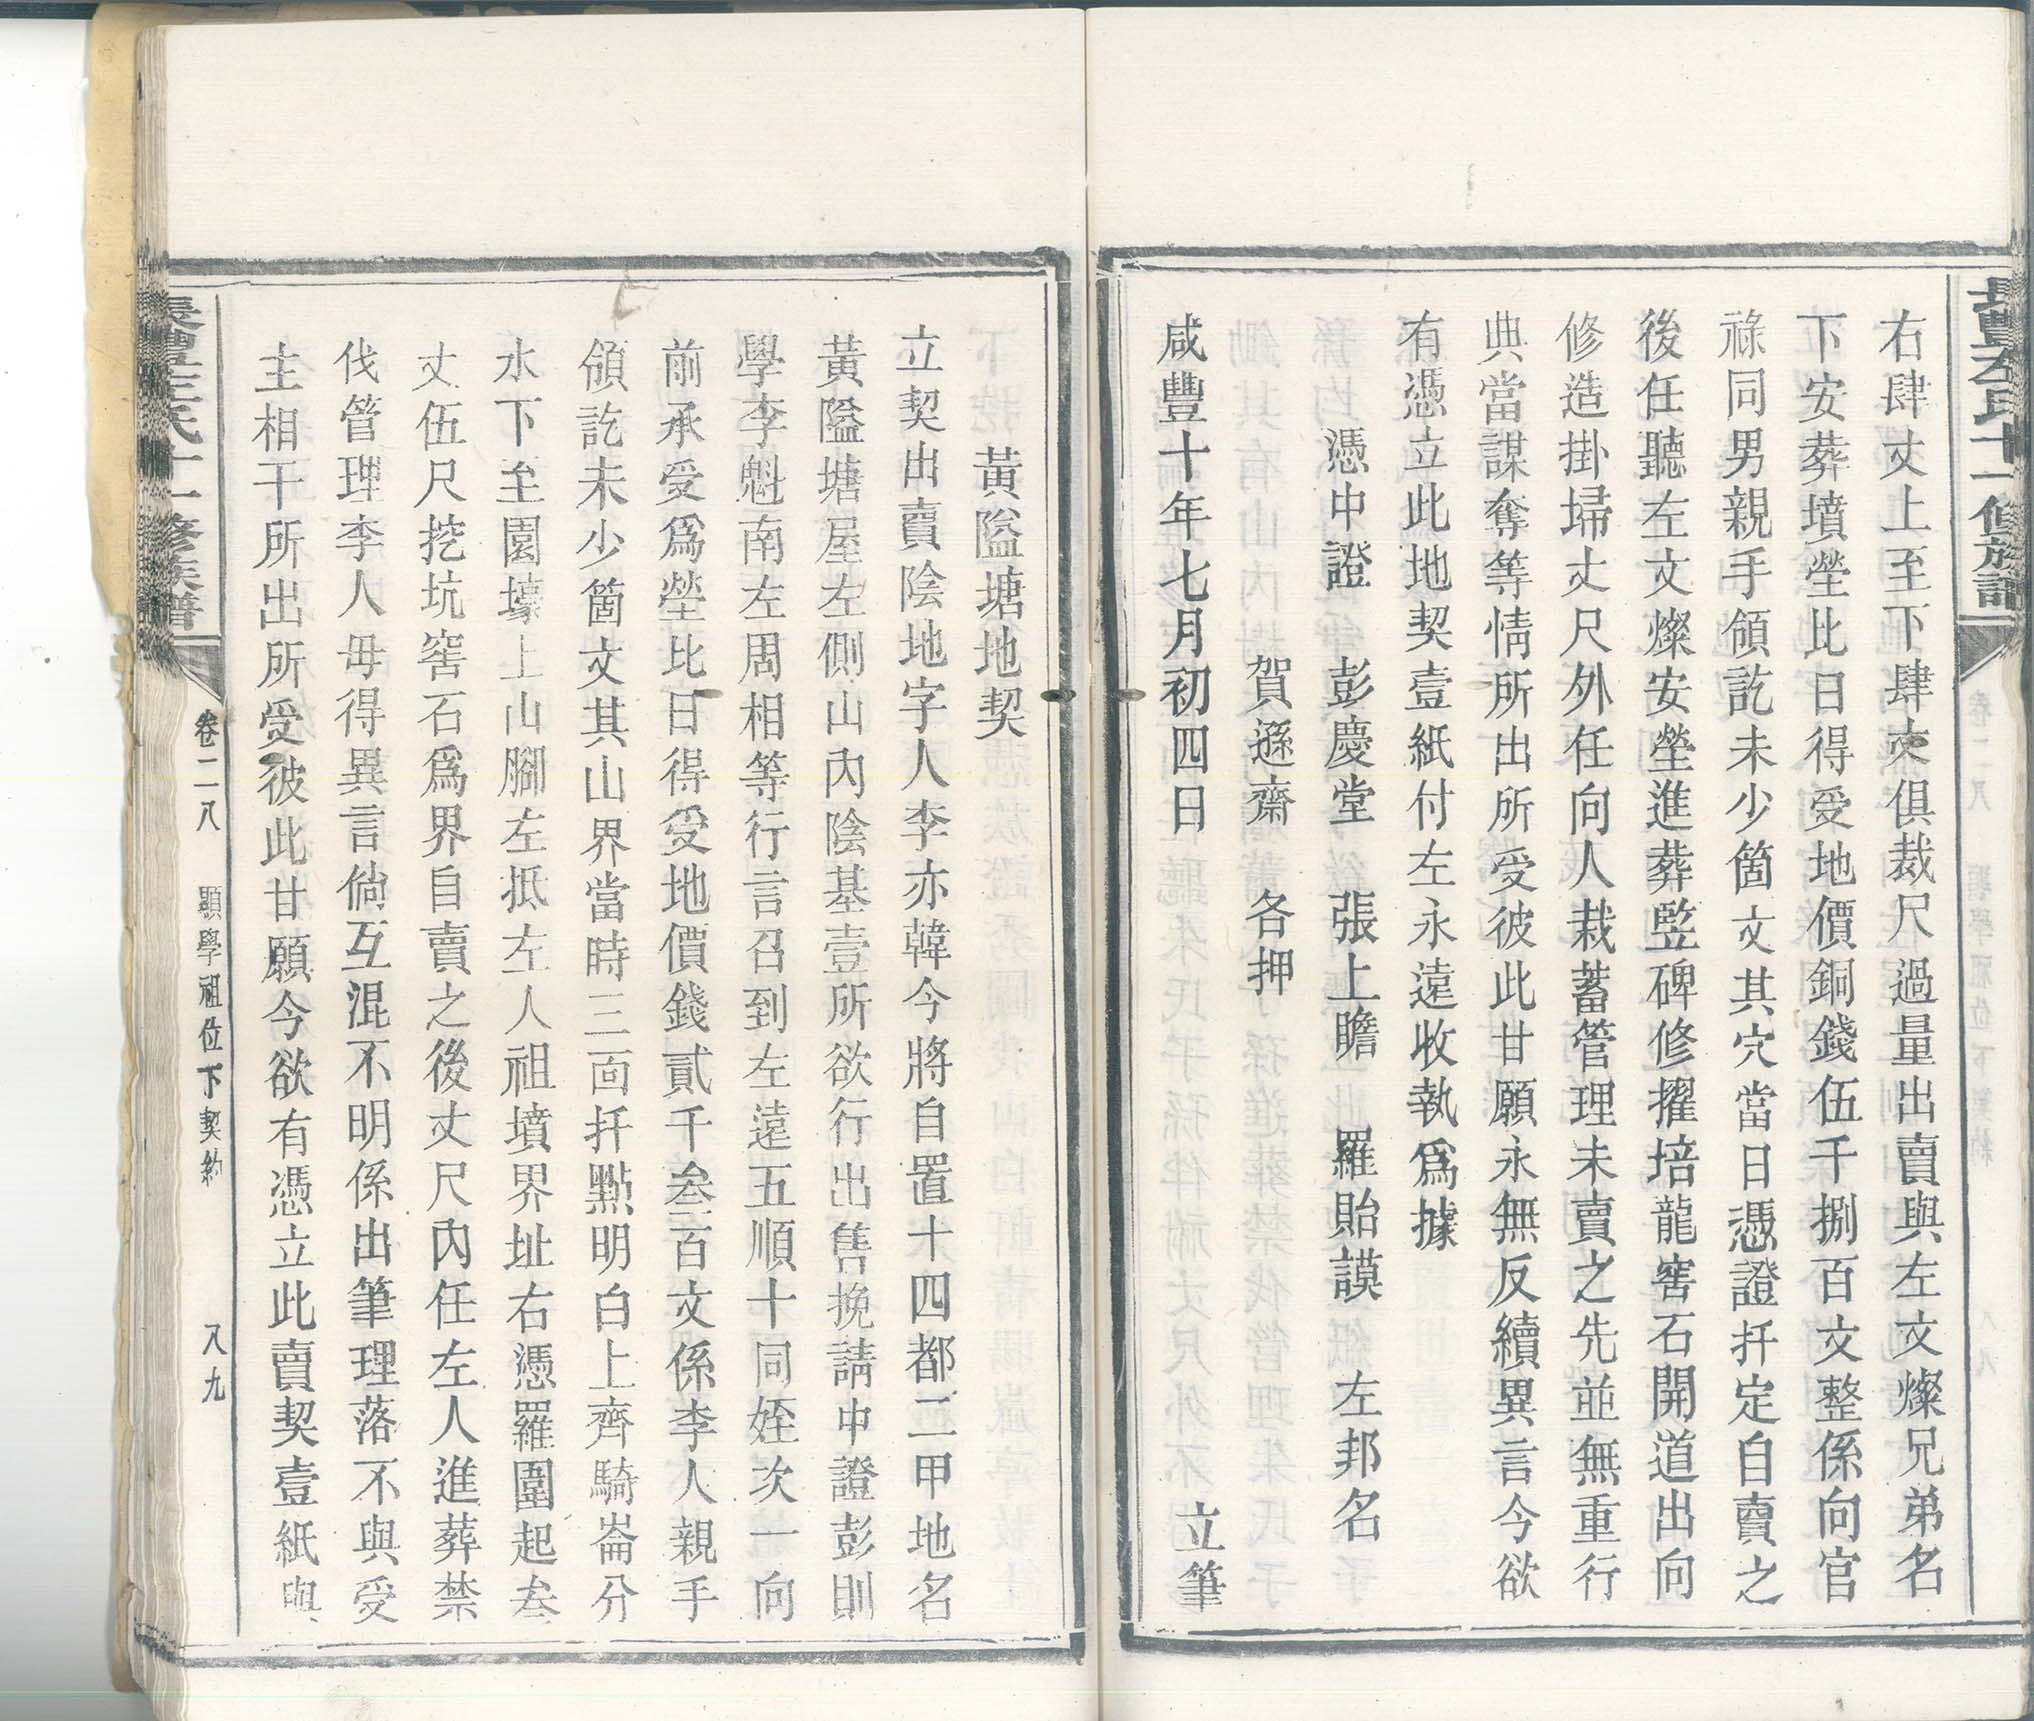 長豐左氏十一修族譜
右肆丈上至下肆丈俱裁尺過量出賣與左文燦兄弟名
下安葬墳塋比日得受地價銅錢伍千捌百文整係向官
祿同男親手領訖未少箇文其穴當日憑證扦定自賣之
後任聽左文燦安塋進葬竪碑修擢培龍窖石開道出向
修造掛掃丈尺外任向人栽蓄管理未賣之先並無重行
典當謀奪等情所出所受彼此甘願永無反續異言今欲
有憑立此地契壹紙付左永遠收執爲據
憑中證　彭慶堂　張上瞻　羅貽謨　左邦名
賀遜齋　各押
咸豐十年七月初四日　立筆
黃隘塘地契
立契出賣陰地字人李亦韓今將自置十四都二甲地名
黃隘塘屋左側山內陰基壹所欲行出售挽請中證彭則
學李魁南左周相等行言召到左遠五順十同姪次一向
前承受爲塋比日得受地價錢貳千叁百文係李人親手
領訖未少箇文其山界當時三面扦點明白上齊騎崙分
水下至園壕上山腳左抵左人祖墳界址右憑羅圍起叁
丈伍尺挖坑窖石爲界自賣之後丈尺內任左人進葬禁
伐管理李人毋得異言倘互混不明係出筆理落不與受
主相干所出所受彼此甘願今欲有憑立此賣契壹紙與
長豐左氏十一修族譜　卷二八　顯學祖位下契約　八九